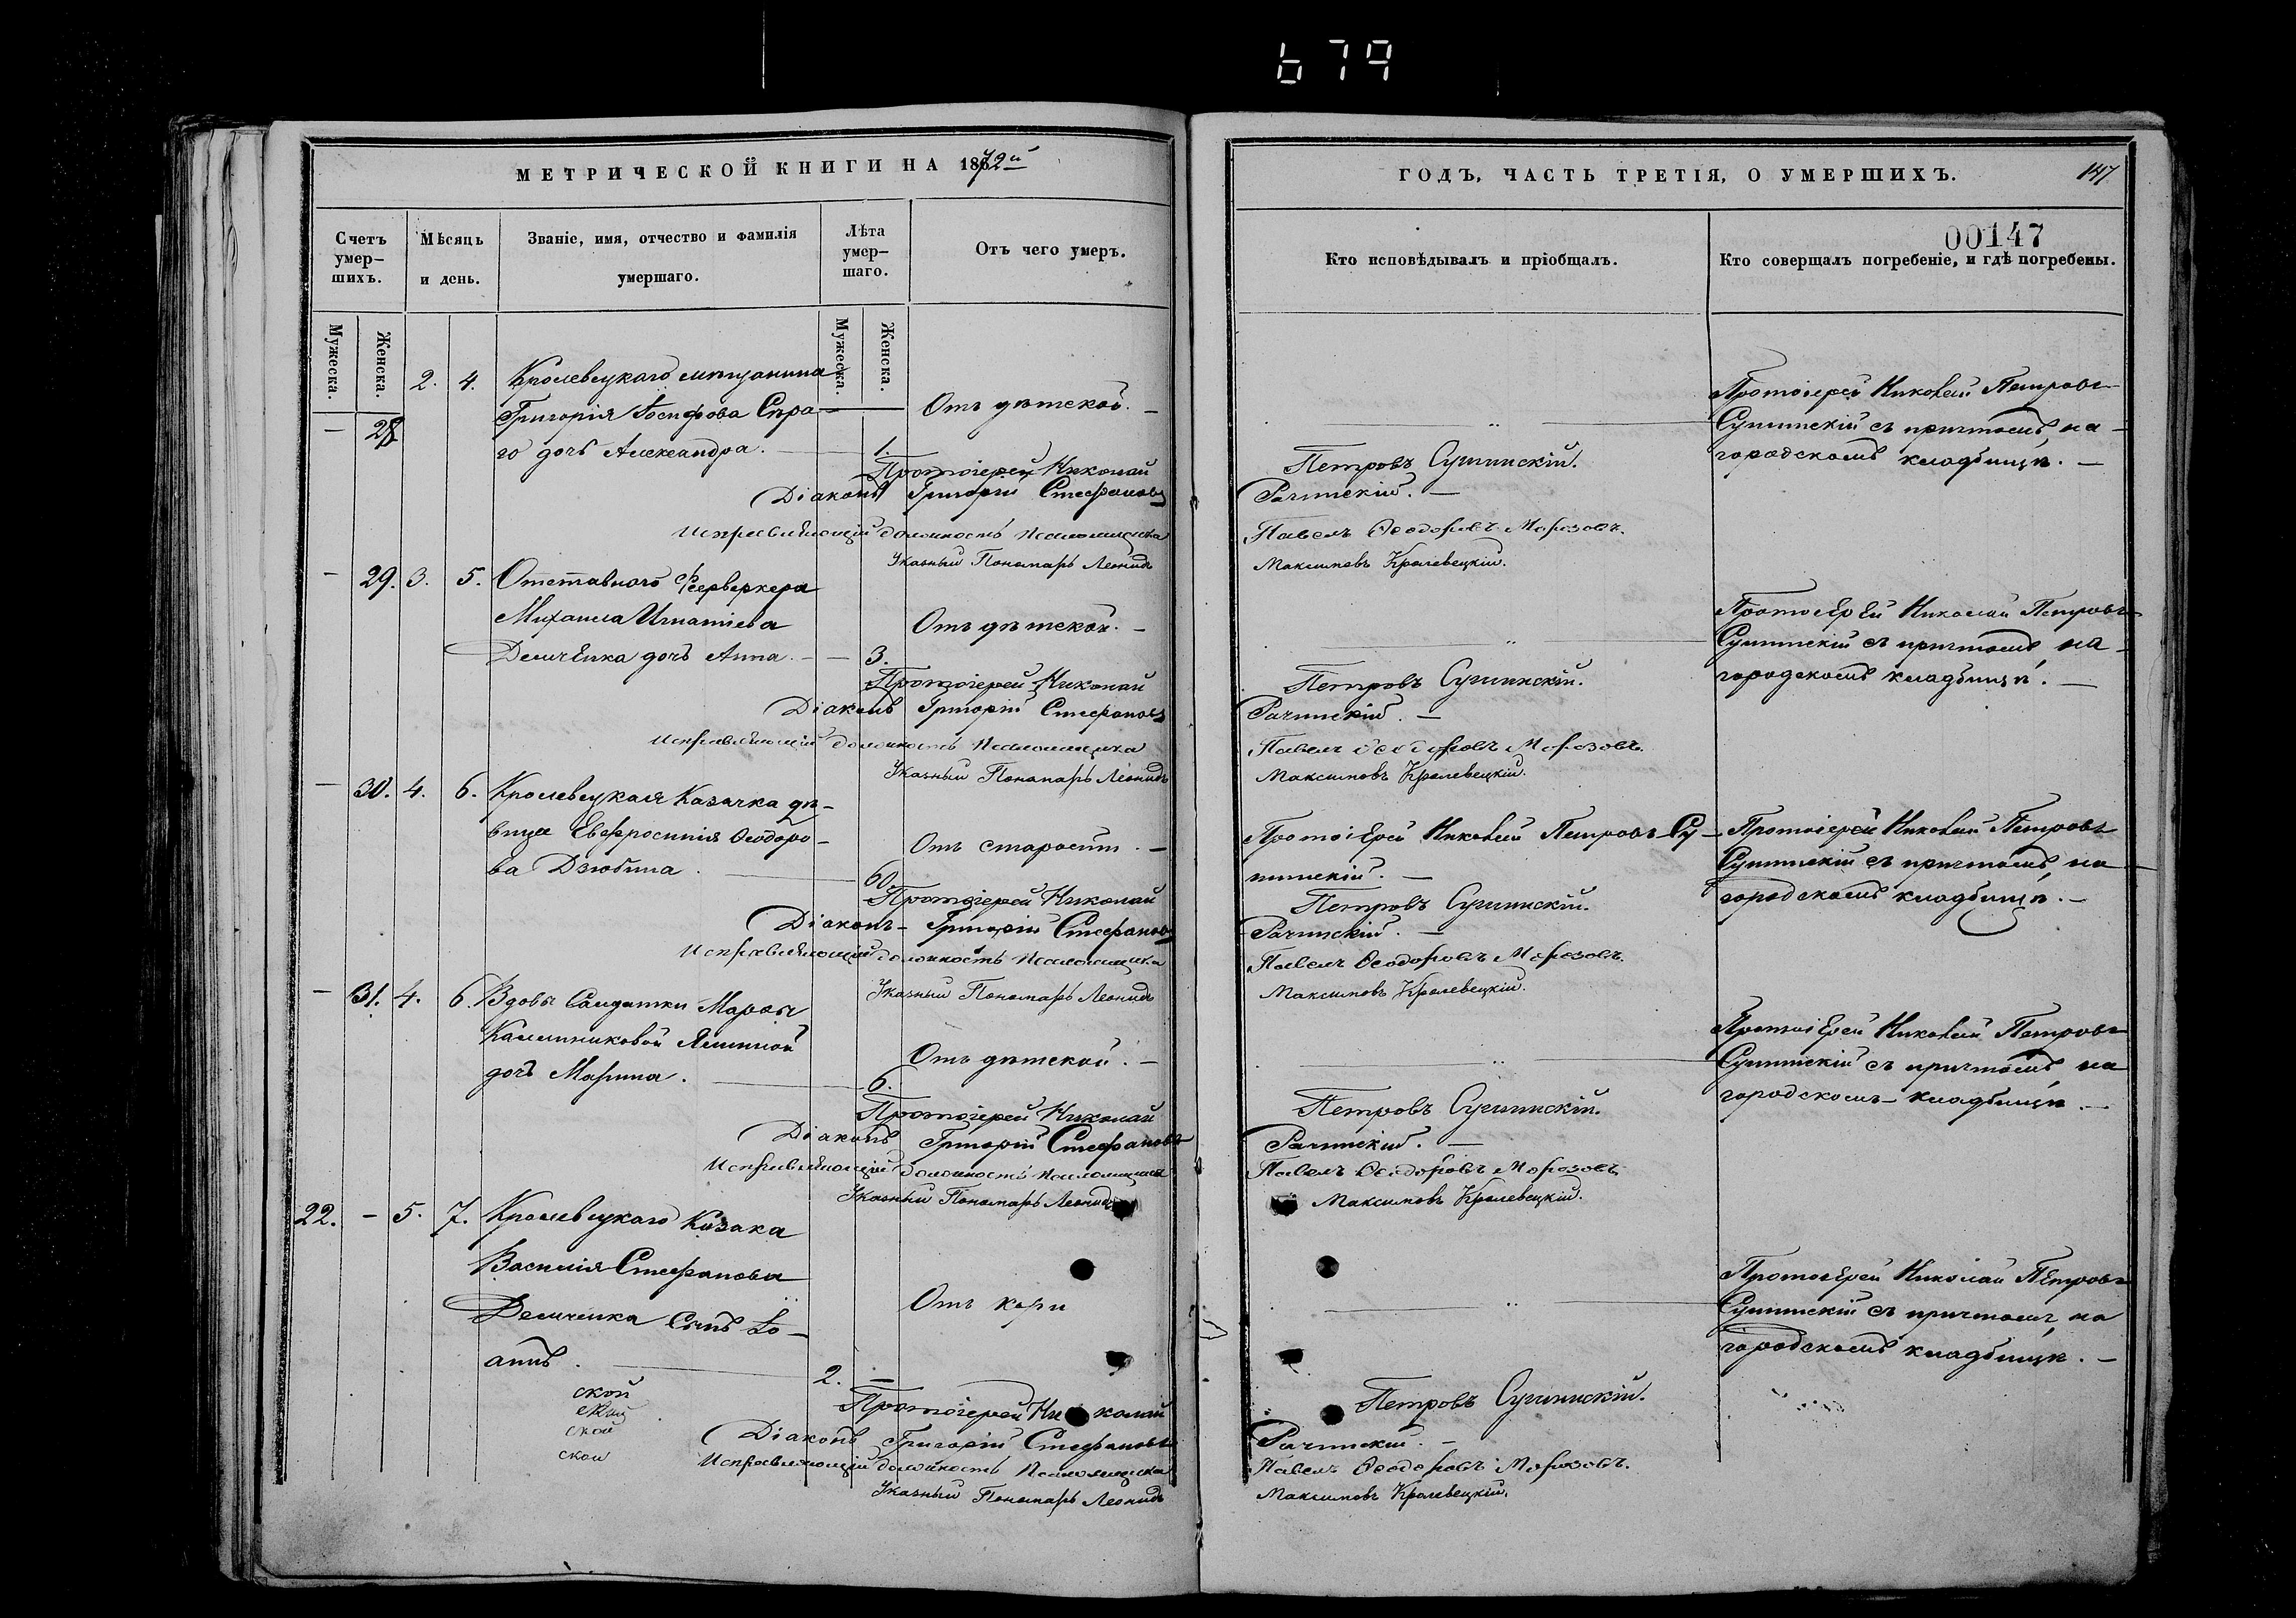 679
МЕТРИЧЕСКОЙ КНИГИ НА 1872й
Счетъ умер-шихъ.
Мѣсяцъ и день.
Званіе, имя, отчество и фамилія умершаго.
Лѣта умер-шаго.
Отъ чего умеръ.
Мужеска.
Женска.
Мужеска.
Женска.
— 28 2. 4. Кролевецкаго мѣщанина
Григорія Іосифова Сѣра—
го дочь Александра. — 1.
Отъ дѣтской. —
Протоіерей Николай
Діаконъ Григорій Стефановъ
Исправляющій должность Псаломщика
Указный Пономарь Леонидъ
— 29. 3. 5. Отставного Феерверкера
Михаила Игнатіева
Демченка дочь Анна. — — 3.
Отъ дѣтской. —
Протоіерей Николай
Діаконъ Григорій Стефановъ
Исправляющій должность Псаломщика
Указный Пономарь Леонидъ
— 30. 4. 6. Кролевецкая Казачка дѣ—
вица Евфросинія Ѳеодоро—
ва Дзюбина. — 60.
Отъ старости. —
Протоіерей Николай
Діаконъ — Григорій Стефановъ
Исправляющій должность Псаломщика
Указный Пономарь Леонидъ
— 31. 4. 6. Вдовы Солдатки Марѳы
Калинниковой
дочь Марина. — 6.
Отъ дѣтской. —
Протоіерей Николай
Діаконъ Григорій Стефановъ
Исправляющій должность Псаломщика
Указный Пономарь Леонидъ
22. — 5. 7. Кролевецкаго Козака
Василія Стефанова
Демченка Сынъ Іо—
аннъ. — 2. —
Отъ кори
ской
ской
ской
ской
Протоіерей Николай
Діаконъ Григорій Стефановъ
Исправляющій должность Псаломщика
Указный Пономарь Леонидъ
ГОДЪ, ЧАСТЬ ТРЕТІЯ, О УМЕРШИХЪ.
147
00147
Кто исповѣдывалъ и пріобщалъ.
Кто совершалъ погребеніе, и гдѣ погребены.
Протоіерей Николай Петровъ
Сушинскій съ причтомъ, на—
городскомъ кладбищѣ. —
Петровъ Сушинскій.
Рачинскій. —
Павелъ Ѳеодоровъ Морозовъ.
Максимовъ Кролевецкій.
Протоіерей Николай Петровъ
Сушинскій съ причтомъ на—
городскомъ кладбищѣ. —
Петровъ Сушинскій.
Рачинскій. —
Павелъ Ѳеодоровъ Морозовъ.
Максимовъ Кролевецкій.
Протоіерей Николай Петровъ Су—
шинскій. —
Протоіерей Николай Петровъ
Сушинскій съ причтомъ, на
городскомъ кладбищѣ. —
Петровъ Сушинскій.
Рачинскій. —
Павелъ Ѳеодоровъ Морозовъ.
Максимовъ Кролевецкій.
Протоіерей Николай Петровъ
Сушинскій съ причтомъ, на
городскомъ кладбищѣ. —
Петровъ Сушинскій.
Рачинскій. —
Павелъ Ѳеодоровъ Морозовъ
Максимовъ Кролевецкій.
Протоіерей Николай Петровъ
Сушинскій съ причтомъ, на
городскомъ кладбищѣ. —
Петровъ Сушинскій.
Рачинскій. —
Павелъ Ѳеодоровъ Морозовъ.
Максимовъ Кролевецкій.